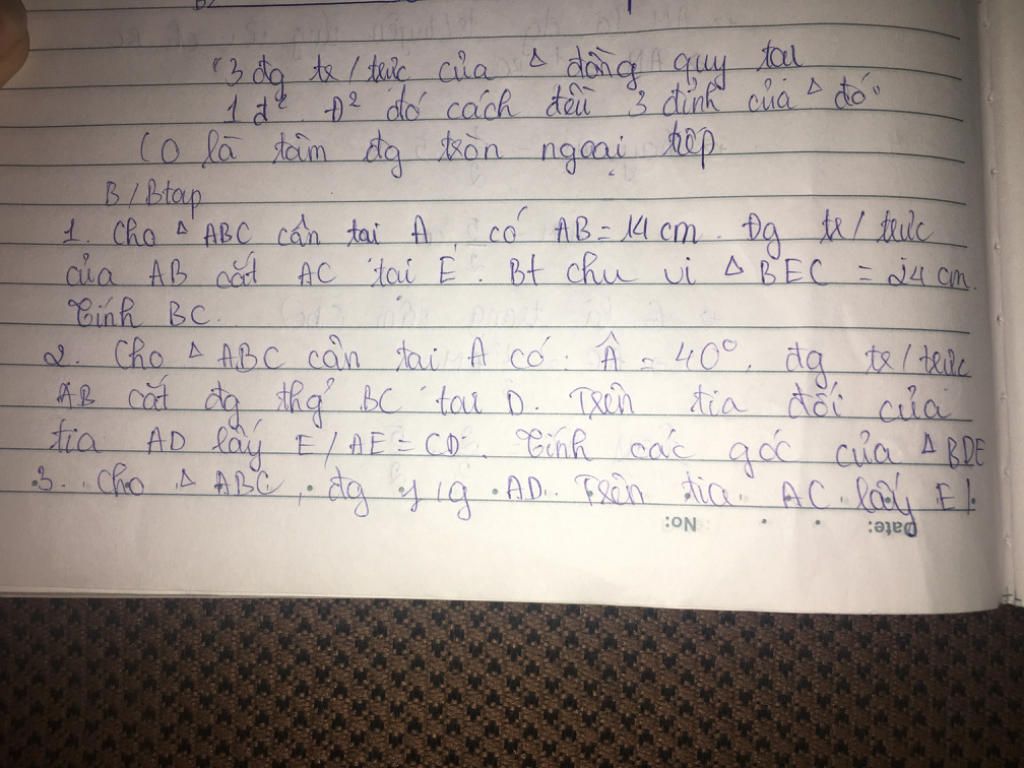 "3 đg tr/trực của Δ đồng quy tại
1 đ² Đ² đó cách đều 3 đỉnh của Δ đó.
(O là tâm đg tròn ngoại tiếp
B/Btập
1. Cho Δ ABC cân tại A, có AB = 14 cm. Đg tr/trực
của AB cắt AC tại E. Bt chu vi Δ BEC = 24 cm.
Tính BC.
2. Cho Δ ABC cân tại A có Â = 40°, đg tr/trực
AB cắt đg thg̉ BC tại D. Trên tia đối của
tia AD lấy E / AE = CD. Tính các góc của Δ BDE
3. Cho Δ ABC, đg AD. Trên tia AC lấy E/
Date: No: